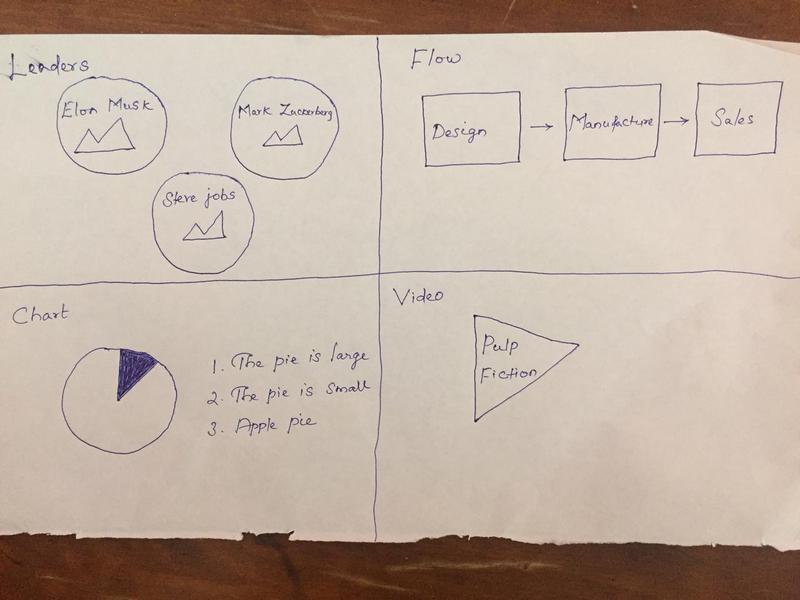 Leaders
Elon Musk
Mark Zuckerberg
Steve jobs
Flow
Design
Manufacture
Sales
Chart
1. The pie is large
2. The pie is small
3. Apple pie
Video
Pulp
Fiction